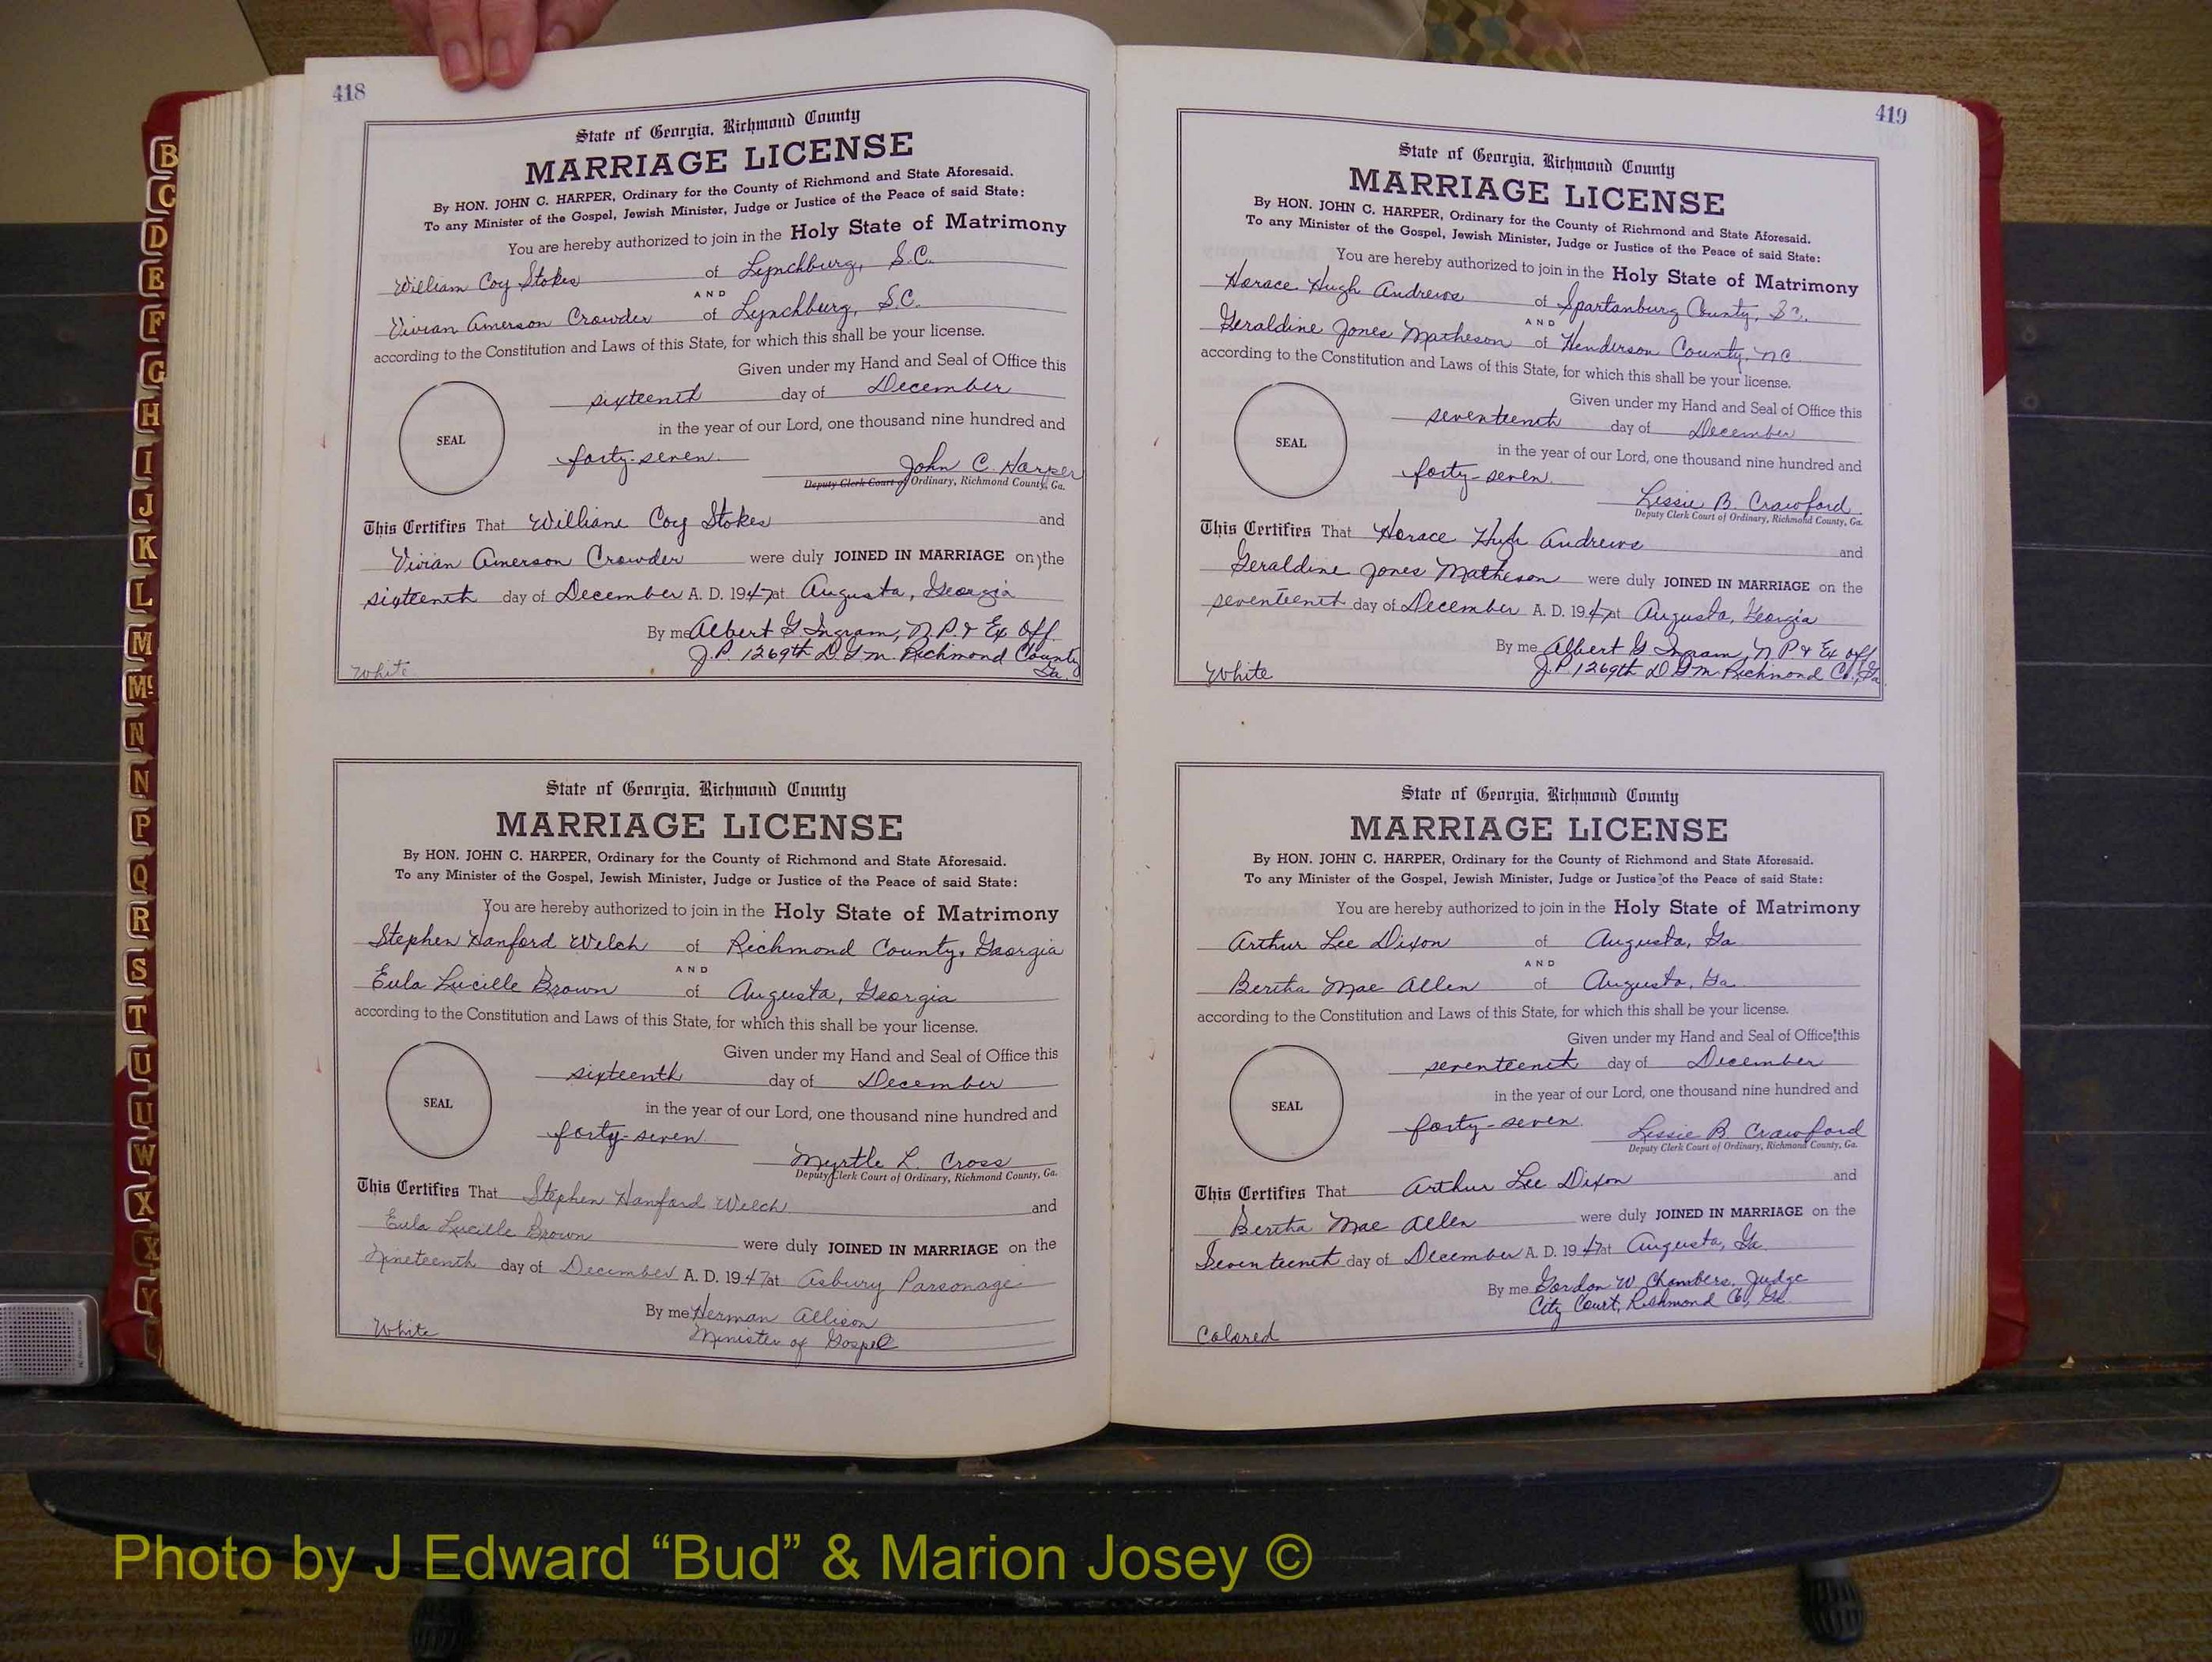 418
State of Georgia, Richmond County
MARRIAGE LICENSE
By HON. JOHN C. HARPER, Ordinary for the County of Richmond and State Aforesaid.
To any Minister of the Gospel, Jewish Minister, Judge or Justice of the Peace of said State:
You are hereby authorized to join in the Holy State of Matrimony
William Coy Stokes of Lynchburg, S.C.
AND
Vivian Amerson Crowder of Lynchburg, S.C.
according to the Constitution and Laws of this State, for which this shall be your license.
Given under my Hand and Seal of Office this
sixteenth day of December
in the year of our Lord, one thousand nine hundred and
SEAL
forty-seven. John C. Harper
Deputy Clerk Court of Ordinary, Richmond County, Ga.
This Certifies That William Coy Stokes and
Vivian Amerson Crowder were duly JOINED IN MARRIAGE on the
sixteenth day of December A. D. 1947 at Augusta, Georgia
By me Albert G Ingram, N.P. & Ex Off.
J.P. 1269th D.G.M. Richmond County
Ga.
White
State of Georgia, Richmond County
MARRIAGE LICENSE
By HON. JOHN C. HARPER, Ordinary for the County of Richmond and State Aforesaid.
To any Minister of the Gospel, Jewish Minister, Judge or Justice of the Peace of said State:
You are hereby authorized to join in the Holy State of Matrimony
Stephen Hanford Welch of Richmond County, Georgia
AND
Eula Lucille Brown of Augusta, Georgia
according to the Constitution and Laws of this State, for which this shall be your license.
Given under my Hand and Seal of Office this
sixteenth day of December
SEAL
in the year of our Lord, one thousand nine hundred and
forty-seven.
Myrtle L. Cross
Deputy Clerk Court of Ordinary, Richmond County, Ga.
This Certifies That Stephen Hanford Welch and
Eula Lucille Brown were duly JOINED IN MARRIAGE on the
Nineteenth day of December A. D. 1947 at Asbury Parsonage
By me Herman Allison
Minister of Gospel
White
419
State of Georgia, Richmond County
MARRIAGE LICENSE
By HON. JOHN C. HARPER, Ordinary for the County of Richmond and State Aforesaid.
To any Minister of the Gospel, Jewish Minister, Judge or Justice of the Peace of said State:
You are hereby authorized to join in the Holy State of Matrimony
Horace Hugh Andrews of Spartanburg County, S.C.
AND
Geraldine Jones Matheson of Henderson County, N.C.
according to the Constitution and Laws of this State, for which this shall be your license.
Given under my Hand and Seal of Office this
seventeenth day of December
SEAL
in the year of our Lord, one thousand nine hundred and
forty-seven.
Lessie B. Crawford
Deputy Clerk Court of Ordinary, Richmond County, Ga.
This Certifies That Horace Hugh Andrews and
Geraldine Jones Matheson were duly JOINED IN MARRIAGE on the
seventeenth day of December A. D. 1947 at Augusta, Georgia
By me Albert G Ingram, N.P. & Ex Off
J.P. 1269th D G M Richmond Co., Ga.
White
State of Georgia, Richmond County
MARRIAGE LICENSE
By HON. JOHN C. HARPER, Ordinary for the County of Richmond and State Aforesaid.
To any Minister of the Gospel, Jewish Minister, Judge or Justice of the Peace of said State:
You are hereby authorized to join in the Holy State of Matrimony
Arthur Lee Dixon of Augusta, Ga
AND
Bertha Mae Allen of Augusta, Ga
according to the Constitution and Laws of this State, for which this shall be your license.
Given under my Hand and Seal of Office this
seventeenth day of December
in the year of our Lord, one thousand nine hundred and
SEAL
forty-seven. Lessie B. Crawford
Deputy Clerk Court of Ordinary, Richmond County, Ga.
This Certifies That Arthur Lee Dixon and
Bertha Mae Allen were duly JOINED IN MARRIAGE on the
Seventeenth day of December A. D. 1947 at Augusta, Ga.
By me Gordon W Chambers, Judge
City Court, Richmond Co., Ga.
Colored
B
C
D
E
F
G
H
I
J
K
L
M
Mc
N
N
P
Q
R
S
T
U
U
W
X
X
Y
Photo by J Edward “Bud” & Marion Josey ©